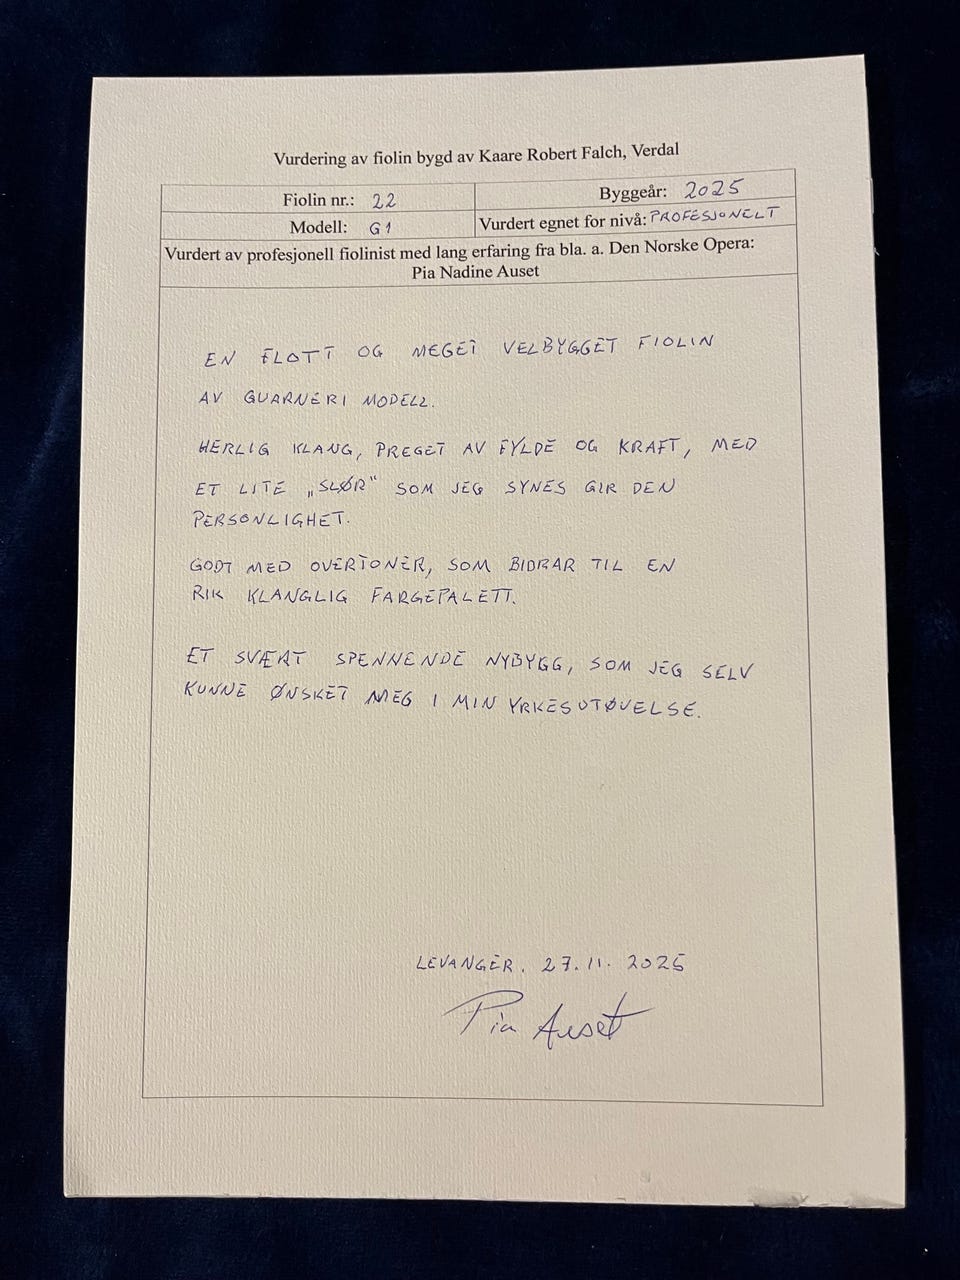 Vurdering av fiolin bygd av Kaare Robert Falch, Verdal
Fiolin nr.: 22
Byggeår: 2025
Modell: G1
Vurdert egnet for nivå: PROFESJONELT
Vurdert av profesjonell fiolinist med lang erfaring fra bla. a. Den Norske Opera:
Pia Nadine Auset
EN FLOTT OG MEGET VELBYGGET FIOLIN
AV GUARNERI MODELL.
HERLIG KLANG, PREGET AV FYLDE OG KRAFT, MED
ET LITE „SLØR“ SOM JEG SYNES GIR DEN
PERSONLIGHET.
GODT MED OVERTONER, SOM BIDRAR TIL EN
RIK KLANGLIG FARGEPALETT.
ET SVÆRT SPENNENDE NYBYGG, SOM JEG SELV
KUNNE ØNSKET MEG I MIN YRKESUTØVELSE.
LEVANGER. 27.11. 2025
Pia Auset